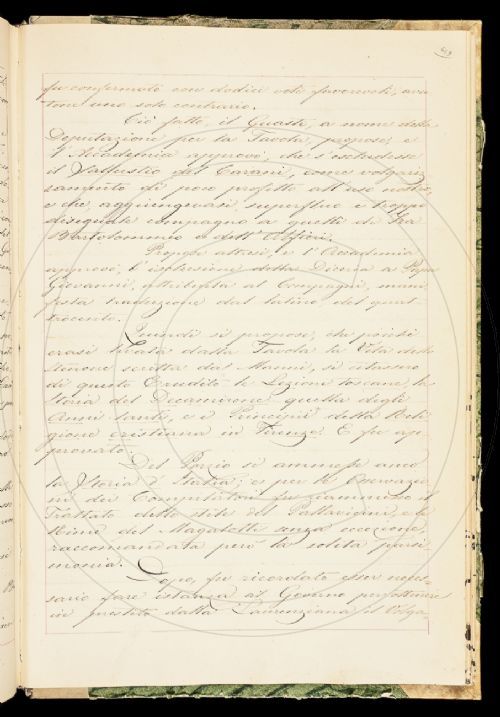 fu confermato con dodici voti favorevoli, ava
tone uno solo contrario.
Ciò fatto, il Guasti, a nome della
Deputazione per la Tavola, propose, e
l'Accademia approvò, che s'escludesse
il Sallustio del Carani, come volgariz
zamento di poco profitto all'uso nostro,
e che aggiungevasi, superfluo e troppo
diseguale compagno a quelli di Fra
Bartolommeo e dell'Alfieri.
Propose altresì, e l'Accademia
approvò, l'esclusione della Diceria a Papa
Giovanni, attribuita al Compagni, mani
festa traduzione dal latino, del quat
trocento.
Quindi si propose, che poichè
erasi levata dalla Tavola la Vita dello
Stenone scritta dal Manni, si citassero
di questo Erudito le Lezioni toscane, la
Storia del Decamerone, quella degli
Anni santi, e i Principii della Reli
gione cristiana in Firenze. E fu ap
provato.
Del Porzio si ammesse anco
la Storia d'Italia; e per le Osservazio
ni dei Compilatori fu riammesso il
Trattato dello stile del Pallavicini, e le
Rime del Magalotti senza eccezione,
raccomandata però la solita parsi
monia.
Dopo, fu ricordato esser neces
sario fare istanza al Governo per ottenere
in prestito dalla Laurenziana il Volga